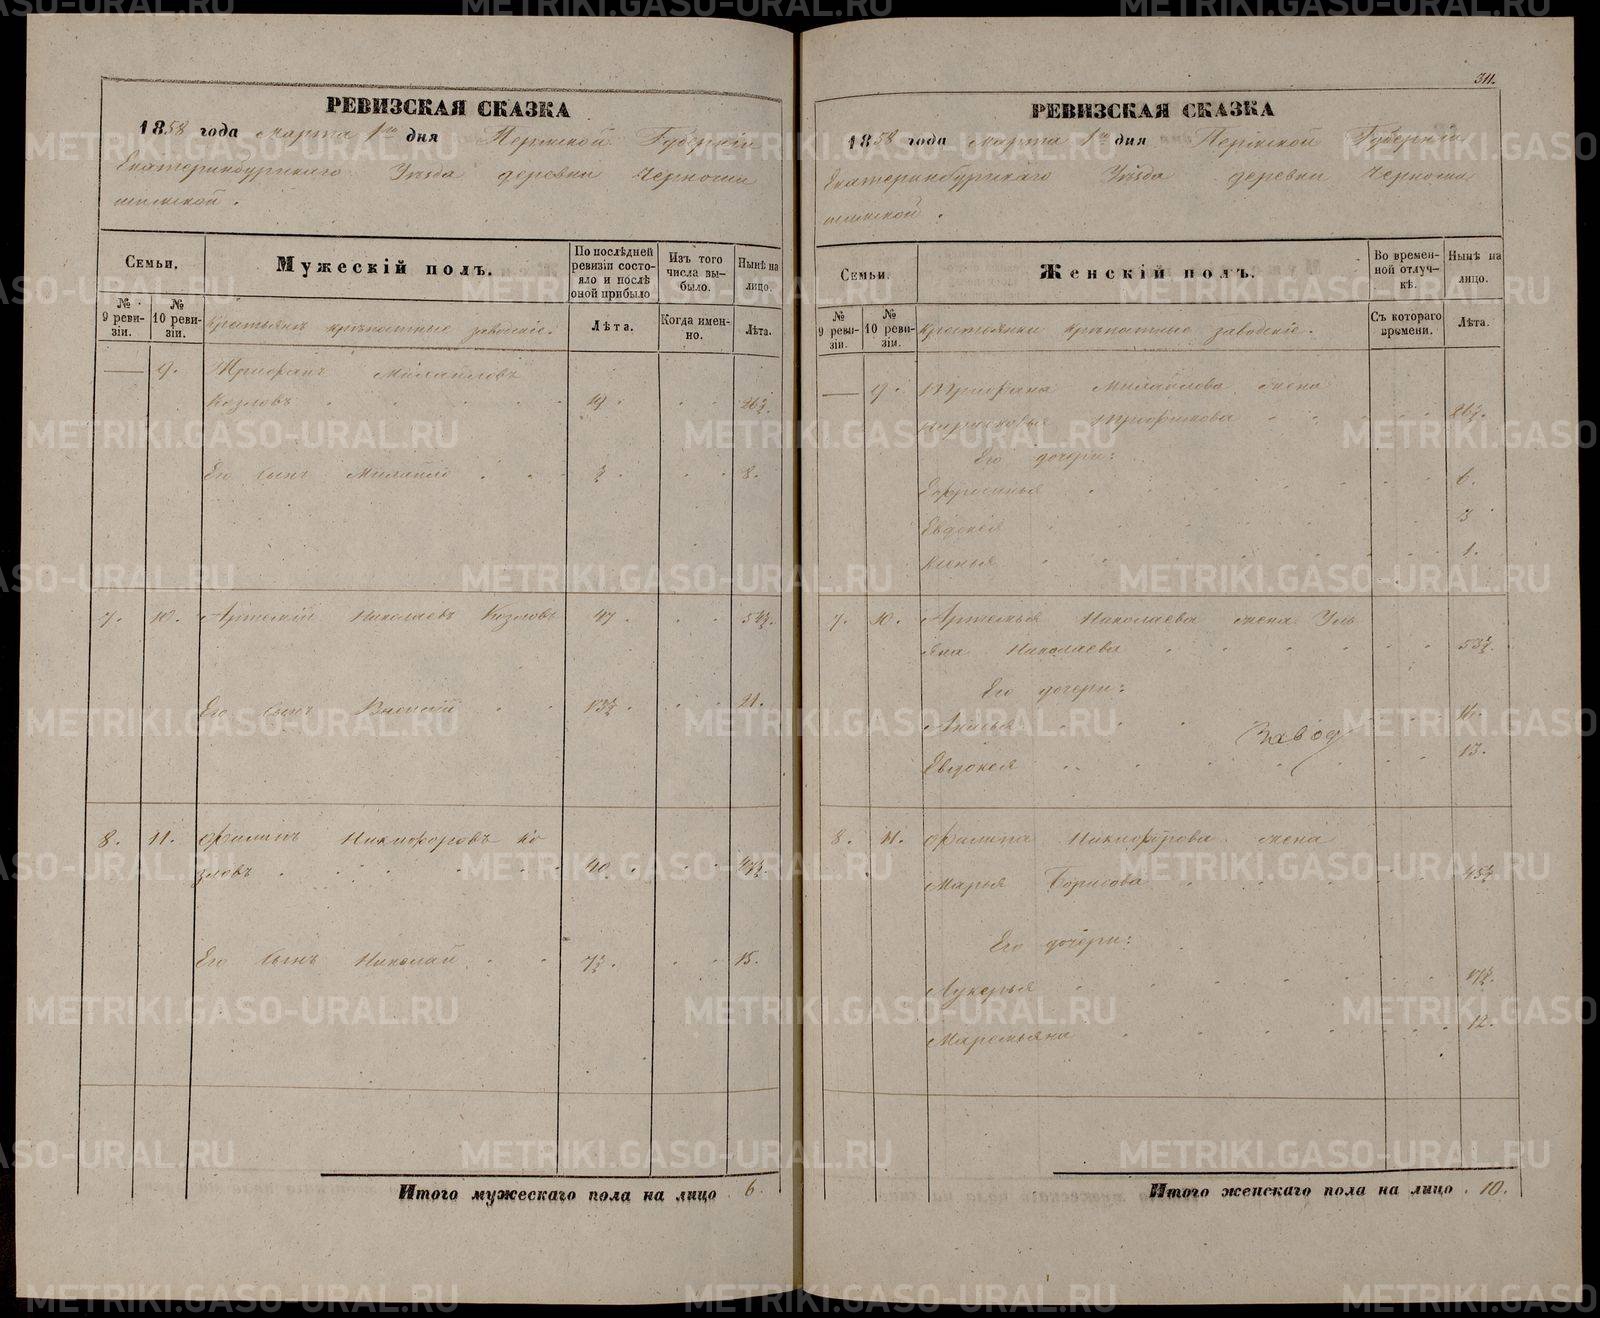 РЕВИЗСКАЯ СКАЗКА
1858 года Марта 1го дня Пермской Губернiи
Екатеринбургскаго Уѣзда деревни Черноши
шимской.
Семьи.
Мужескiй полъ.
По послѣдней ревизiи состояло и послѣ оной прибыло
Изъ того числа выбыло.
Нынѣ на лицо.
№ 9 ревизiи.
№ 10 ревизiи.
Крестьянъ крѣпостные заводскiе.
Лѣта.
Когда именно.
Лѣта.
— 9. Трифанъ Михайловъ
Козловъ 19. 26½.
Его сынъ Михайло ½. 8.
7. 10. Артемiй Николаевъ Козловъ 47. 55½.
Его сынъ 13½. 21.
8. 11. Филипъ Никифоровъ Ко
зловъ 40. 48½.
Его сынъ Николай 7½. 15.
Итого мужескаго пола на лицо 6.
311.
РЕВИЗСКАЯ СКАЗКА
1858 года марта 1го дня Пермской Губернiи
Екатеринбургскаго Уѣзда деревни Черноши
шимской.
Семьи.
Женскiй полъ.
Во временной отлучкѣ.
Нынѣ на лицо.
№ 9 ревизiи.
№ 10 ревизiи.
Крестьянки крѣпостные заводскiе.
Съ котораго времени.
Лѣта.
— 9. Трифана Михайлова жена
Трифонова 26½.
Его дочери:
Ефросинья 6.
Евдокея 3
Ксенья 1.
7. 10. Артемья Николаева жена Уль
яна Николаева 53½.
Его дочери:
Акилина 16.
Завод
Евдокея 13.
8. 11. Филипа Никифорова жена
Марья Борисова 45½.
Его дочери:
Лукерья 17½.
Маремьяна 12.
Итого женскаго пола на лицо 10.
METRIKI.GASO-URAL.RU